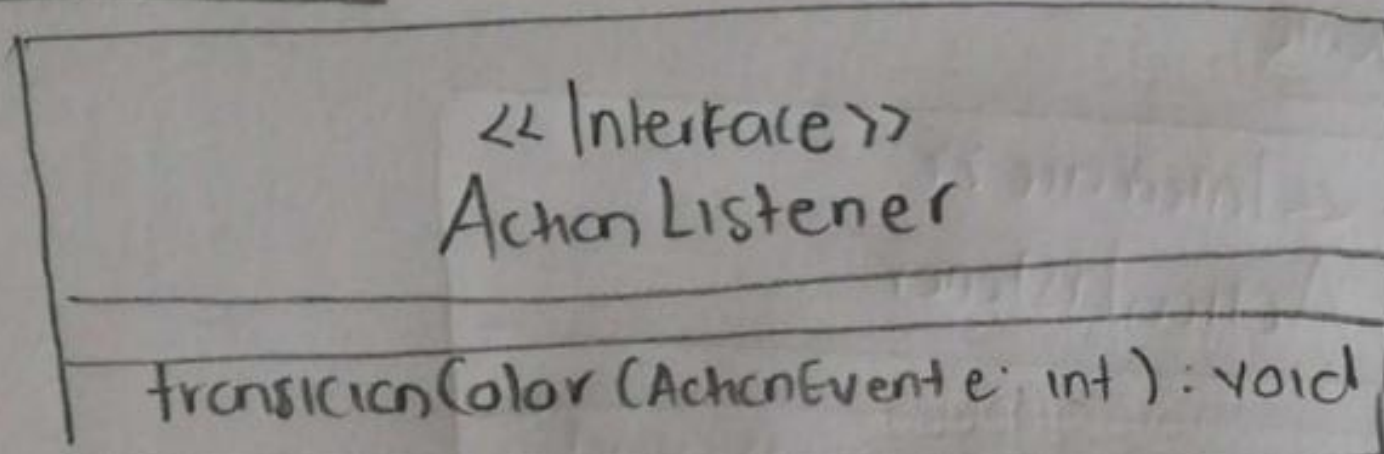 << Interface >>
Action Listener
transicionColor (ActionEvent e: int) : void